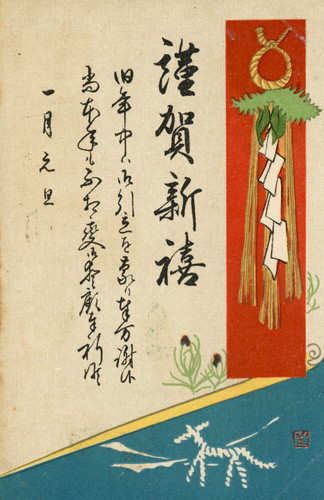 謹賀新禧
旧年中ハ御引立を蒙り奉万謝候
尚本年も不相変御愛顧奉祈候
一月元旦